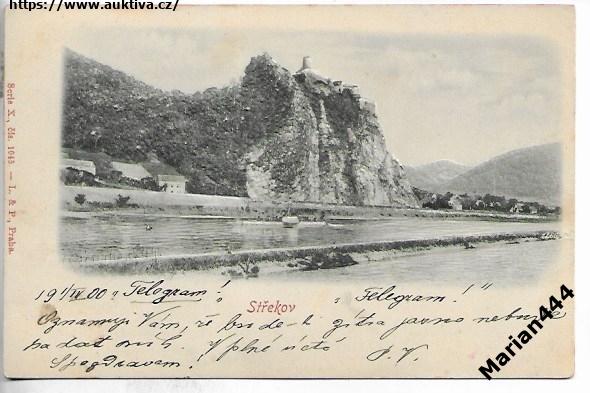 https://www.auktiva.cz/
Serie X., čís. 1043 — L. & P., Praha.
19 1/IV 00 „Telegram!
Střekov
„Telegram!"
Oznamuji Vám, že bude-li zítra jasno nebude
padat sníh. V plné úctě
S pozdravem! P. V.
Marian444